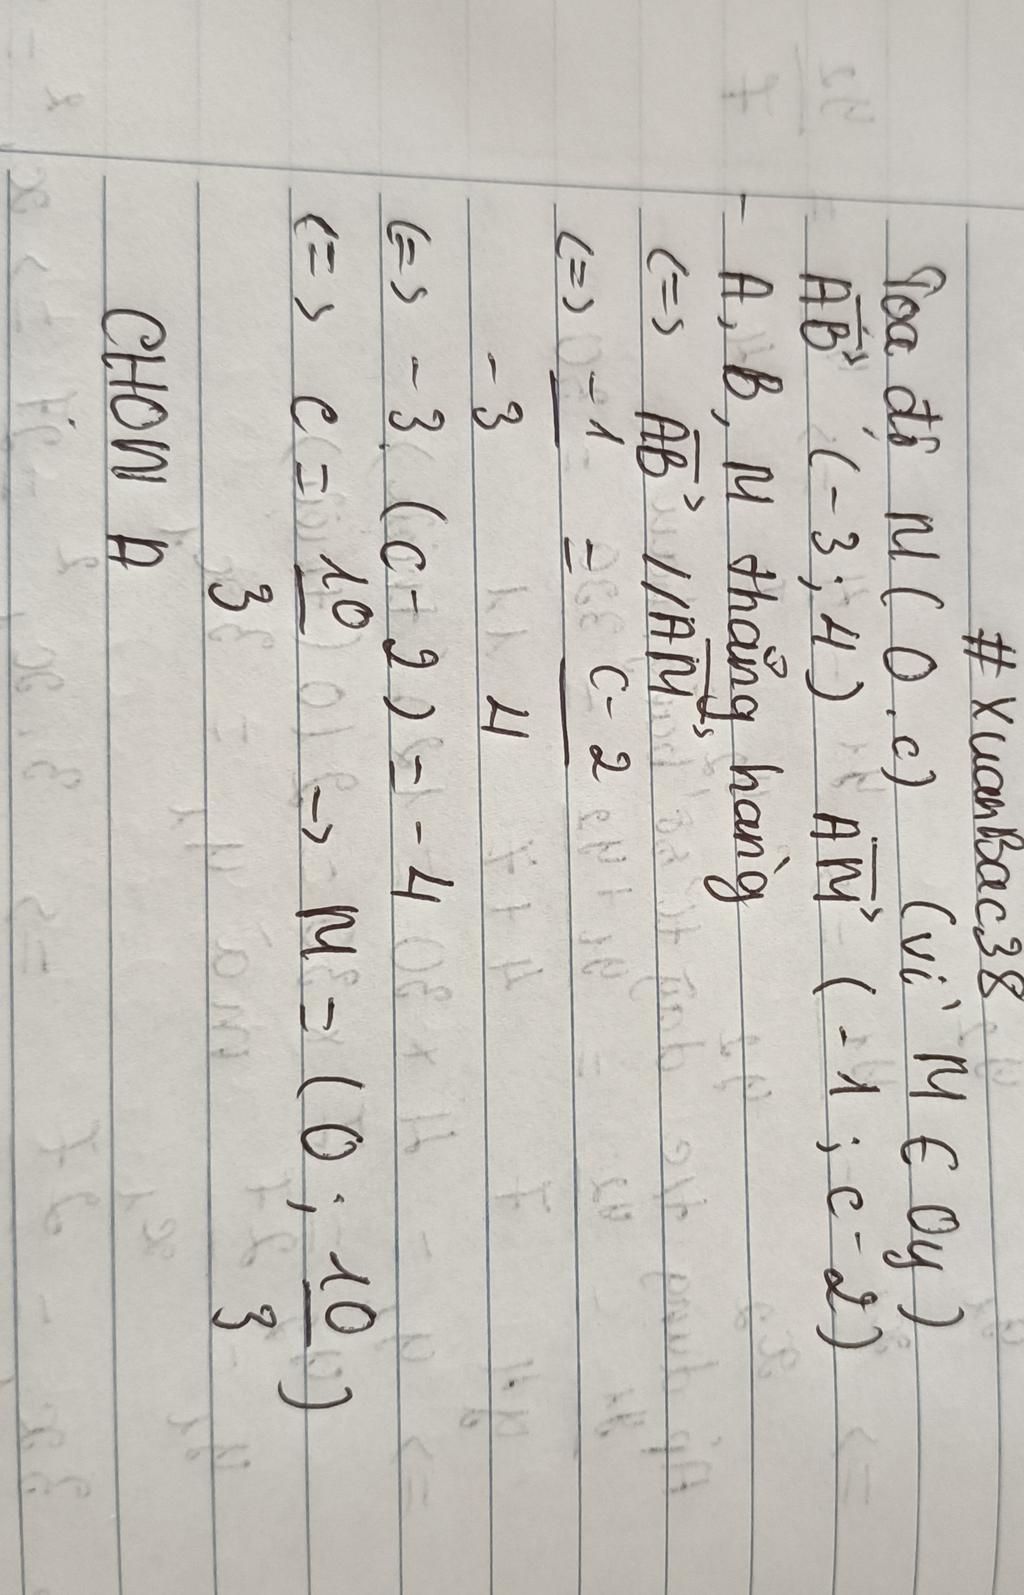 # XuanBac38
Toạ độ M ( 0 , c) (vì M ∈ Oy)
AB→ (-3; 4) AM→ (-1; c-2)
- A, B, M thẳng hàng
<=> AB→ // AM→
<=> -1/-3 = c-2/4
<=> -3 (c-2) = -4
<=> c = 10/3 -> M = (0; 10/3)
CHỌN A